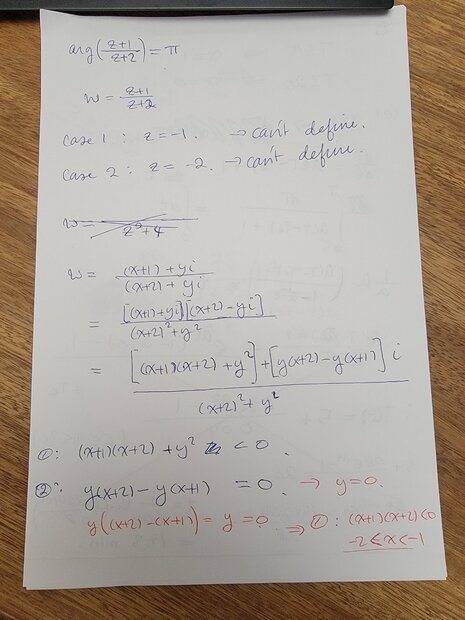 arg(z+1/z+2) = π
w = z+1/z+2
case 1 : z = -1. → can't define.
case 2 : z = -2. → can't define.
w = /z²+4
w = (x+1)+yi/(x+2)+yi
= [(x+1)+yi][(x+2)-yi]/(x+2)²+y²
= [(x+1)(x+2)+y²]+[y(x+2)-y(x+1)]i/(x+2)²+y²
①: (x+1)(x+2)+y² < 0.
②: y(x+2)-y(x+1) = 0. → y=0.
y((x+2)-(x+1)) = y = 0. ⇒ ①: (x+1)(x+2)<0
-2≤x<-1